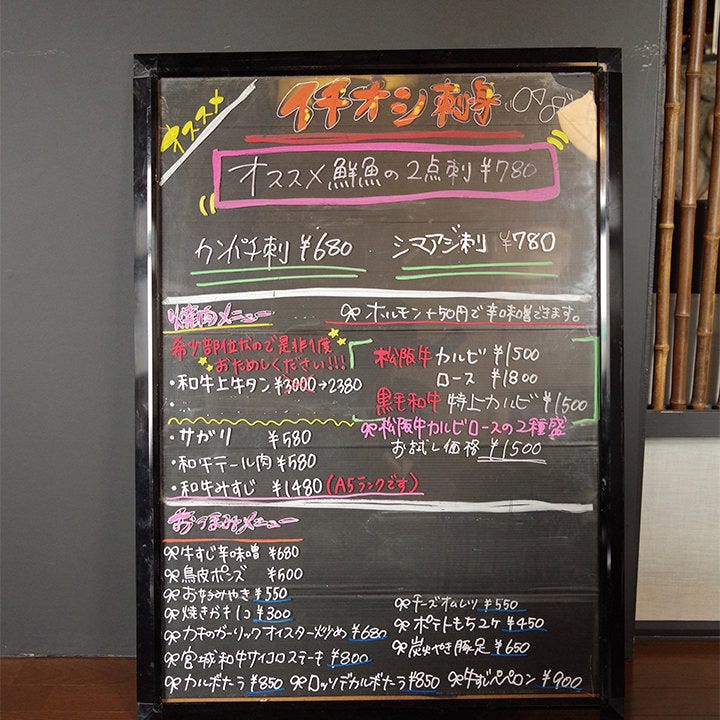 オススメ
イチオシ刺身
オススメ鮮魚の2点刺 ¥780
カンパチ刺 ¥680
シマアジ刺 ¥780
焼肉メニュー
ホルモン+50円で辛味噌できます。
希少部位なので是非1度
おためしください!!!
・和牛上牛タン ¥3000→2380
・
松阪牛 カルビ ¥1500
ロース ¥1800
黒毛和牛 特上カルビ ¥1500
松阪牛カルビロースの2種盛
お試し価格 ¥1500
・サガリ ¥580
・和牛テール肉 ¥580
・和牛みすじ ¥1480 (A5ランクです)
おつまみメニュー
牛すじ辛味噌 ¥680
鳥皮ポンズ ¥500
お好みやき ¥550
焼きがき1コ ¥300
カキのガーリックオイスター炒め ¥680
宮城和牛サイコロステーキ ¥800
チーズオムレツ ¥550
ポテトもち2ケ ¥450
炭火やき豚足 ¥650
カルボナーラ ¥850 ロッソデカルボナーラ ¥850 牛すじペペロン ¥900